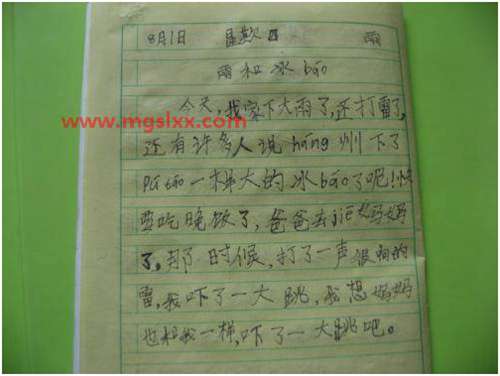 8月1日 星期日 雨
雨和冰báo
今天,我家下大雨了,还打雷了,
www.mgslxx.com
还有许多人说háng州下了
Pú táo一样大的冰báo了呢!快
要吃晚饭了,爸爸去jiē妈妈
了,那时候,打了一声很响的
雷,我吓了一大跳,我想妈妈
也和我一样,吓了一大跳吧。